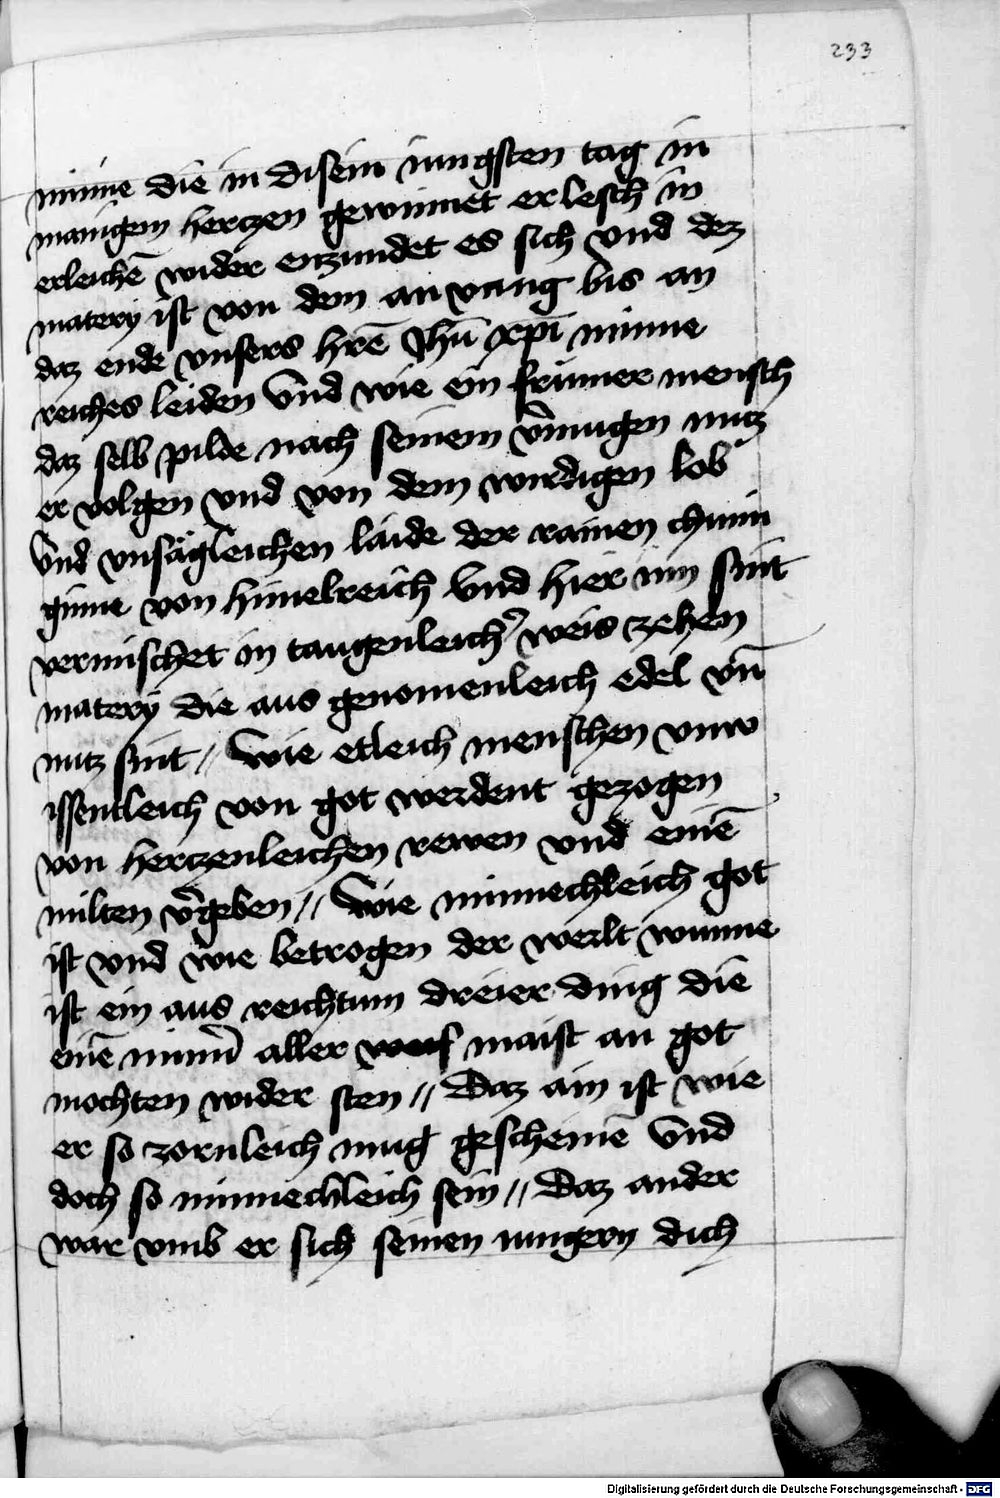 233
minne die in disem iungsten tag in
manigem hertzen gewinnet erlesch in
erleichē wider enzundet es sich vnd dez
matery ist von dem anvang bis an
daz ende vnsers hrē Jhū xpī minne
reiches leiden Vnd wie ein frumer mensch
daz selb pilde nach seinem v̄mugen nutz
er volgen vnd von dem wirdigen lob
Vnd vnsägleichen laide der rainen chuni
ginne von himelreich Vnd hier inn sint
vermischet in taugenleich' weis zehen
matery die aus genomenleich edel vn̄
nutz sint // Wie etleich menschen vnw
issentleich von got werdent gezogen
von hertzenleichen rewen vnd einē
milten v̄geben // Wie minnechleich got
ist vnd wie betrogen der werlt wunne
ist ein aus reichtum dreier ding die
einē minn' aller maist an got
mochten wider sten // Daz ain ist wie
er so zornleich mug gescheinē Vnd
doch so minnechleich sein // Daz ander
war vmb er sich seinen iungern dich
Digitalisierung gefördert durch die Deutsche Forschungsgemeinschaft - DFG